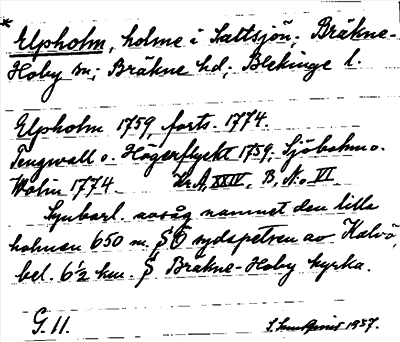 * Elpholm, holme i Saltsjön; Bräkne-
Hoby sn; Bräkne hd; Blekinge l.
Elpholm 1759, forts. 1774.
Tengwall o. Högerflyckt 1759, Sjöholm o.
Wolin 1774. Kr.A, XXIV, B, N:o VI
Synbarl. avsåg namnet den lilla
holmen 650 m. S Ö sydspetsen av Kalvö,
bel. 6½ km. S Bräkne-Hoby kyrka.
G. 11. 1937.